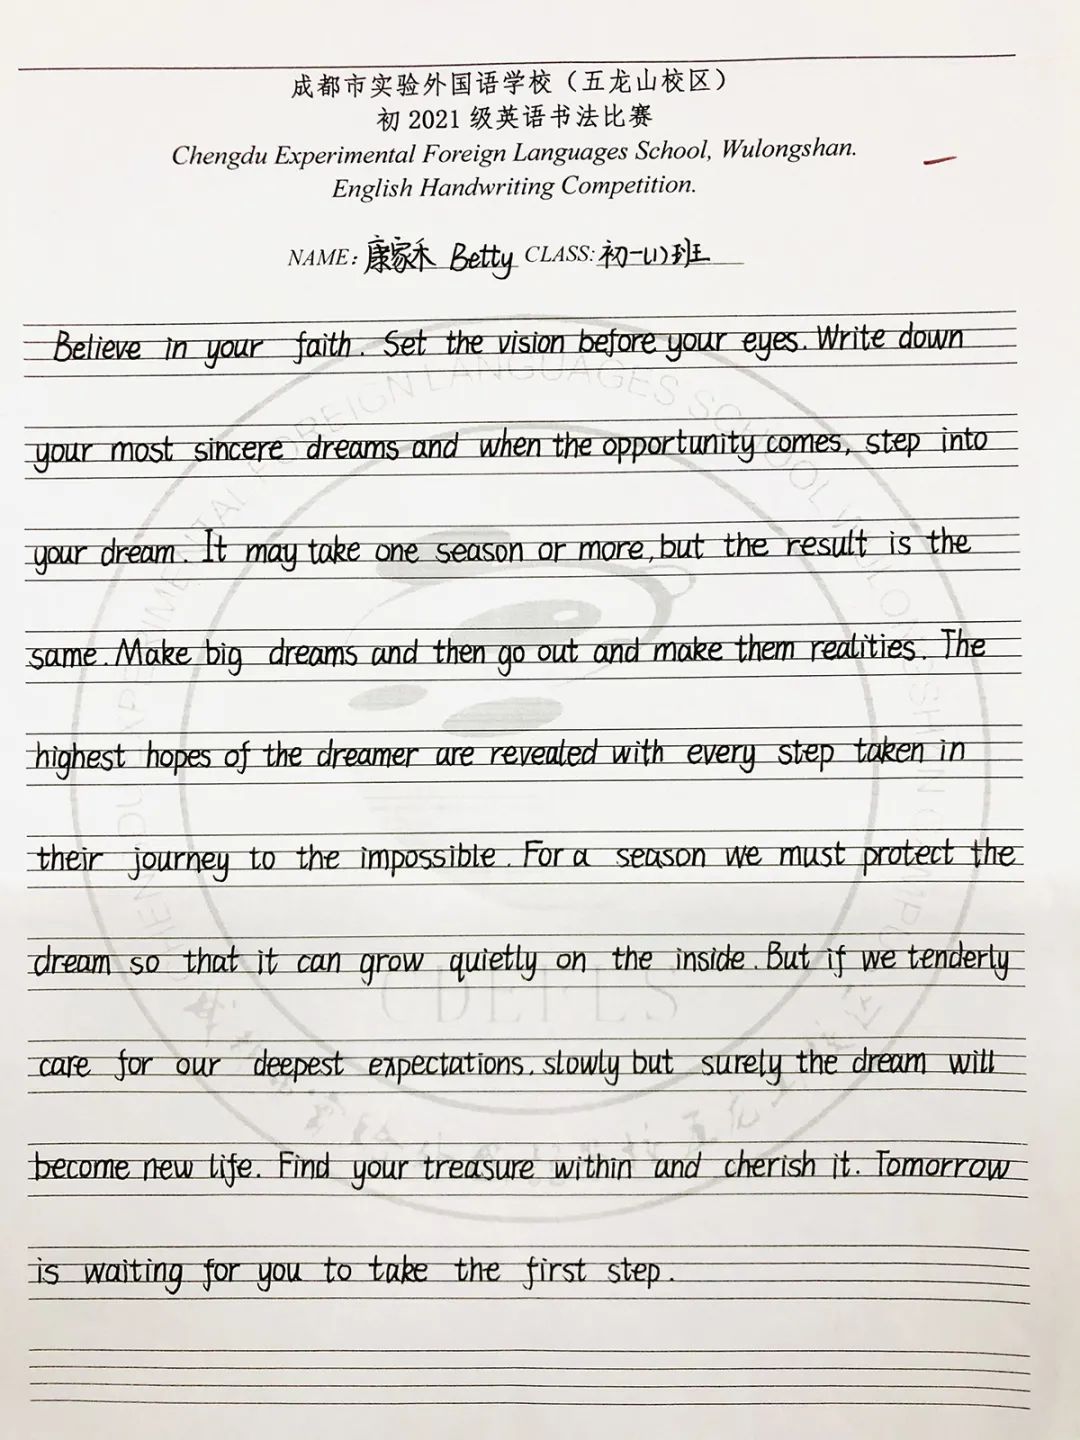 成都市实验外国语学校（五龙山校区）
初 2021 级英语书法比赛
Chengdu Experimental Foreign Languages School, Wulongshan.
English Handwriting Competition.
NAME: 康家禾 Betty CLASS: 初一(1)班
Believe in your faith. Set the vision before your eyes. Write down
your most sincere dreams and when the opportunity comes, step into
your dream. It may take one season or more, but the result is the
same. Make big dreams and then go out and make them realities. The
highest hopes of the dreamer are revealed with every step taken in
their journey to the impossible. For a season we must protect the
dream so that it can grow quietly on the inside. But if we tenderly
care for our deepest expectations, slowly but surely the dream will
become new life. Find your treasure within and cherish it. Tomorrow
is waiting for you to take the first step.
CDEFLS